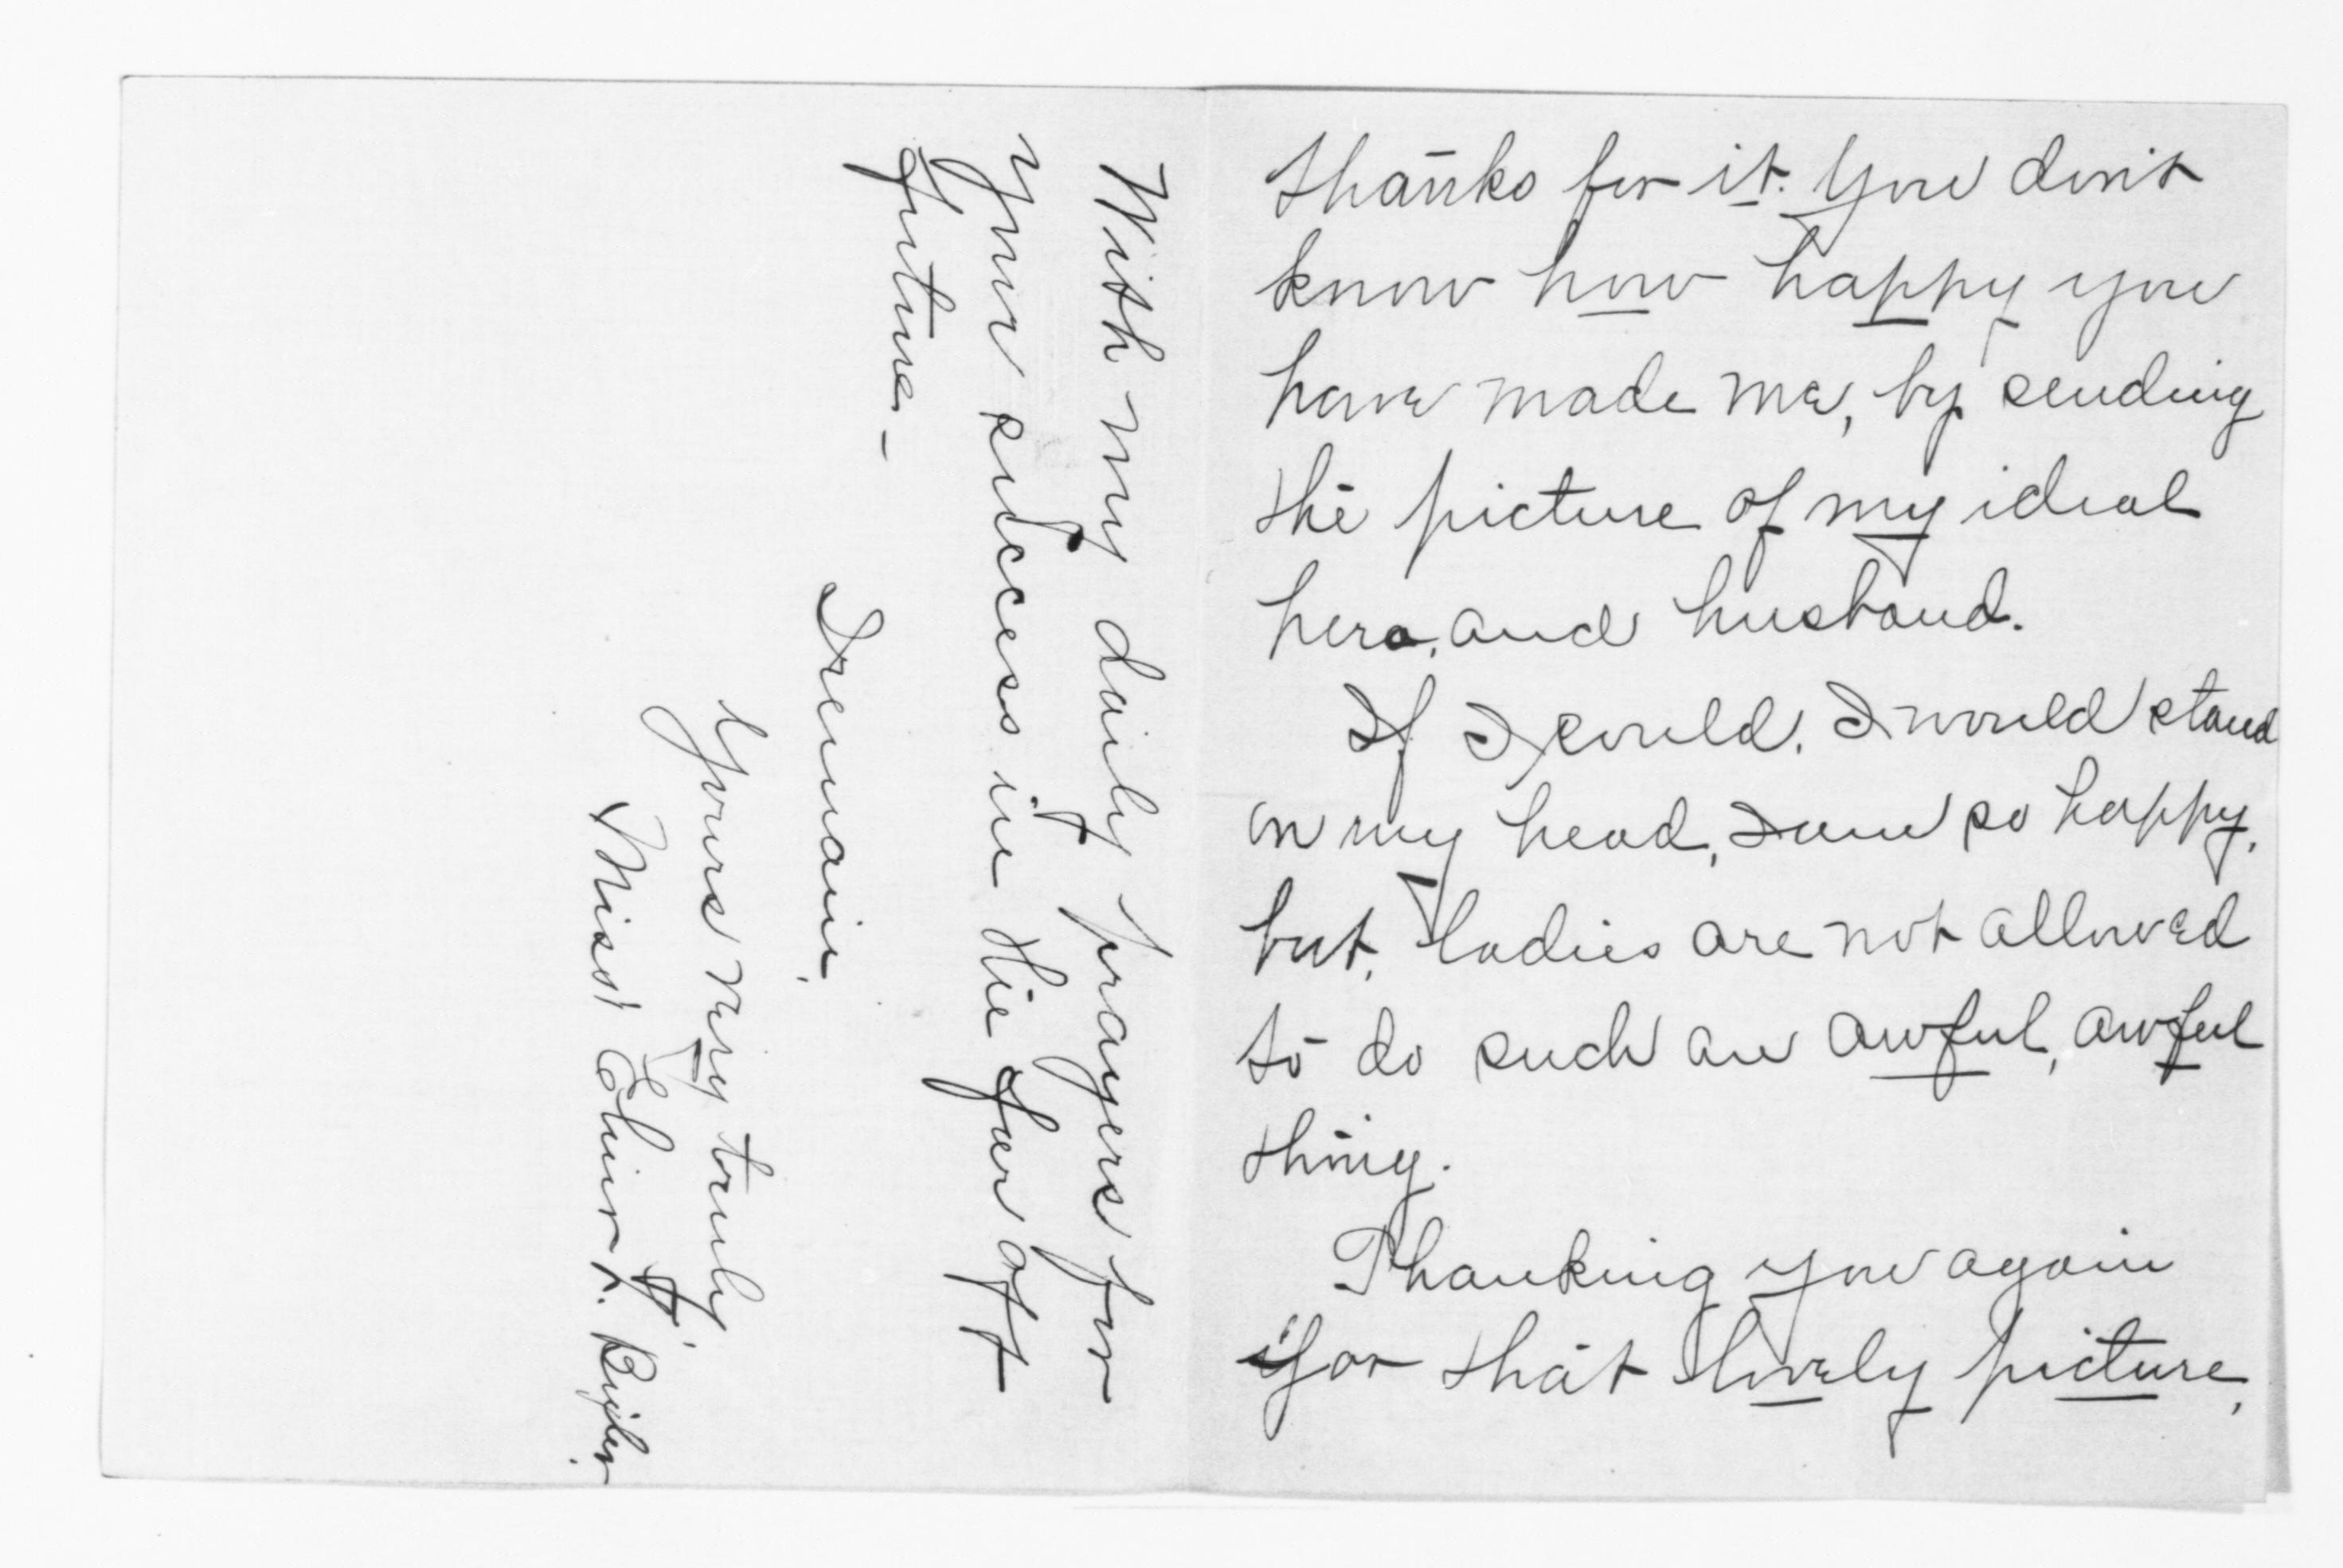 thanks for it. You don't
know how happy you
have made me, by sending
the picture of my ideal
hero, and husband.
If I could, I would stand
on my head, I am so happy,
but, ladies are not allowed
to do such an awful, awful
thing.
Thanking you again
for that lovely picture,
With my daily prayers for
your success in the far oft
future –
I remain,
Yours very truly
Miss Elinor